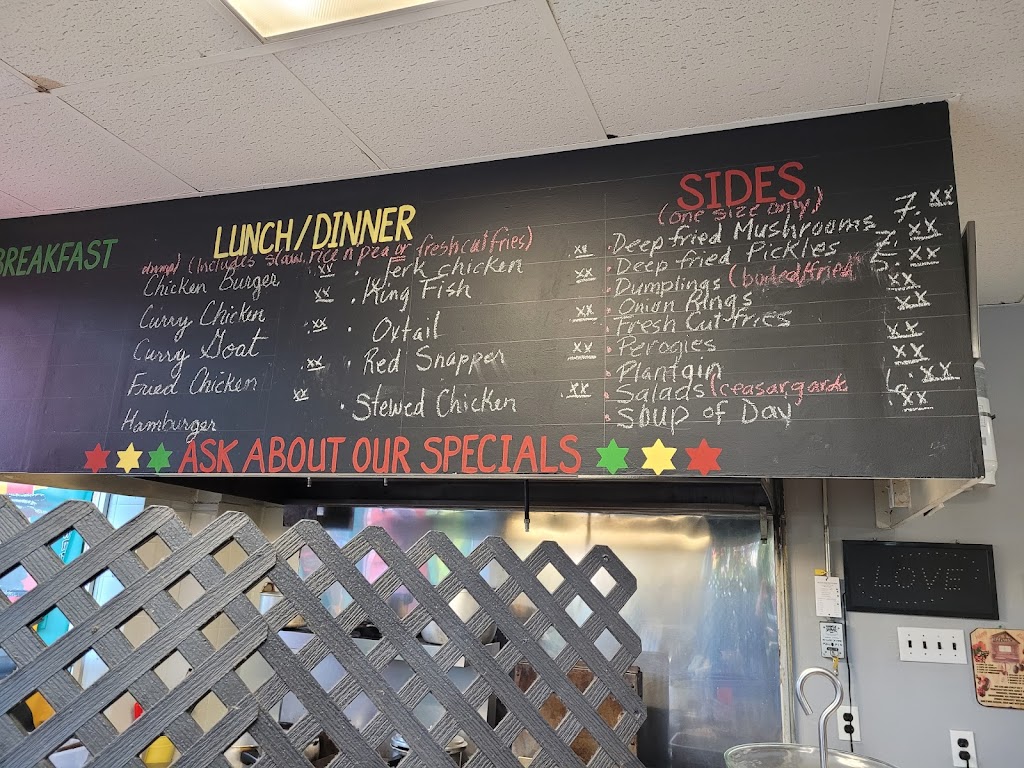 BREAKFAST
LUNCH/DINNER
dinner (Includes slaw, rice n pea or fresh cut fries)
Chicken Burger .xx
Curry Chicken xx
Curry Goat .xx
Fried Chicken .xx
Hamburger xx
. Jerk chicken .xx
. King Fish xx
. Oxtail .xx
. Red Snapper xx
. Stewed Chicken .xx
SIDES
(one size only)
. Deep fried Mushrooms 7.xx
. Deep fried Pickles 7.xx
. Dumplings (boiled/fried) 5.xx
. Onion Rings .xx
. Fresh Cut fries .xx
. Perogies .xx
. Plantain .xx
. Salads (ceasar, gard 6.xx
. Soup of Day .xx
ASK ABOUT OUR SPECIALS
LOVE